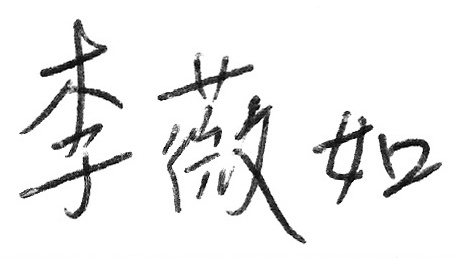 李薇如